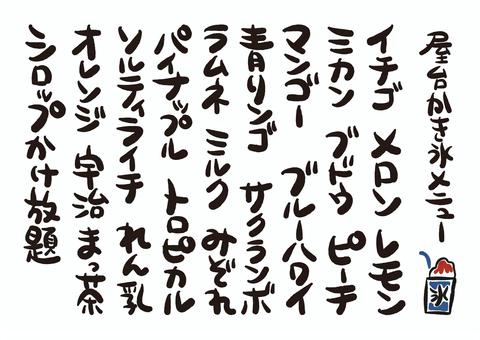 屋台かき氷メニュー
氷
イチゴ メロン レモン
ミカン ブドウ ピーチ
マンゴー ブルーハワイ
青りんゴ サクランボ
ラムネ ミルク みぞれ
パイナップル トロピカル
ソルティライチ れん乳
オレンジ 宇治まっ茶
シロップかけ放題